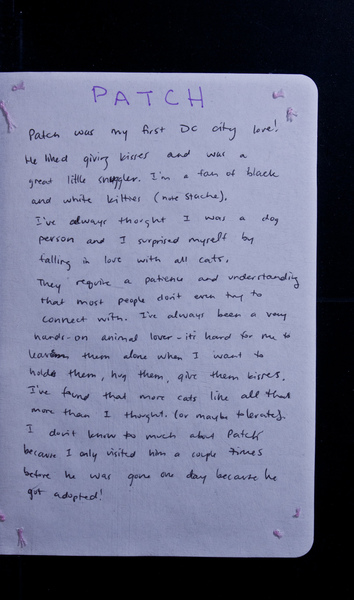 PATCH
Patch was my first DC city love!
He liked giving kisses and was a
great little snuggler. I'm a fan of black
and white kitties (note Stache).
I've always thought I was a dog
person and I surprised myself by
falling in love with all cats.
They require a patience and understanding
that most people don't even try to
connect with. I've always been a very
hands-on animal lover - it's hard for me to
leave them alone when I want to
hold them, hug them, give them kisses.
I've found that more cats like all that
more than I thought. (or maybe tolerate).
I don't know too much about Patch
because I only visited him a couple times
before he was gone one day because he
got adopted!